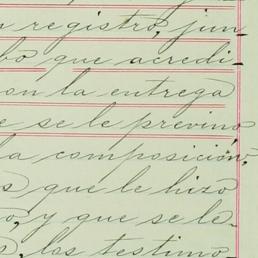 registro, jun-
que acredi-
con la entrega
e se le previno
la composición,
s que le hizo
o, y que se le-
los testimo-